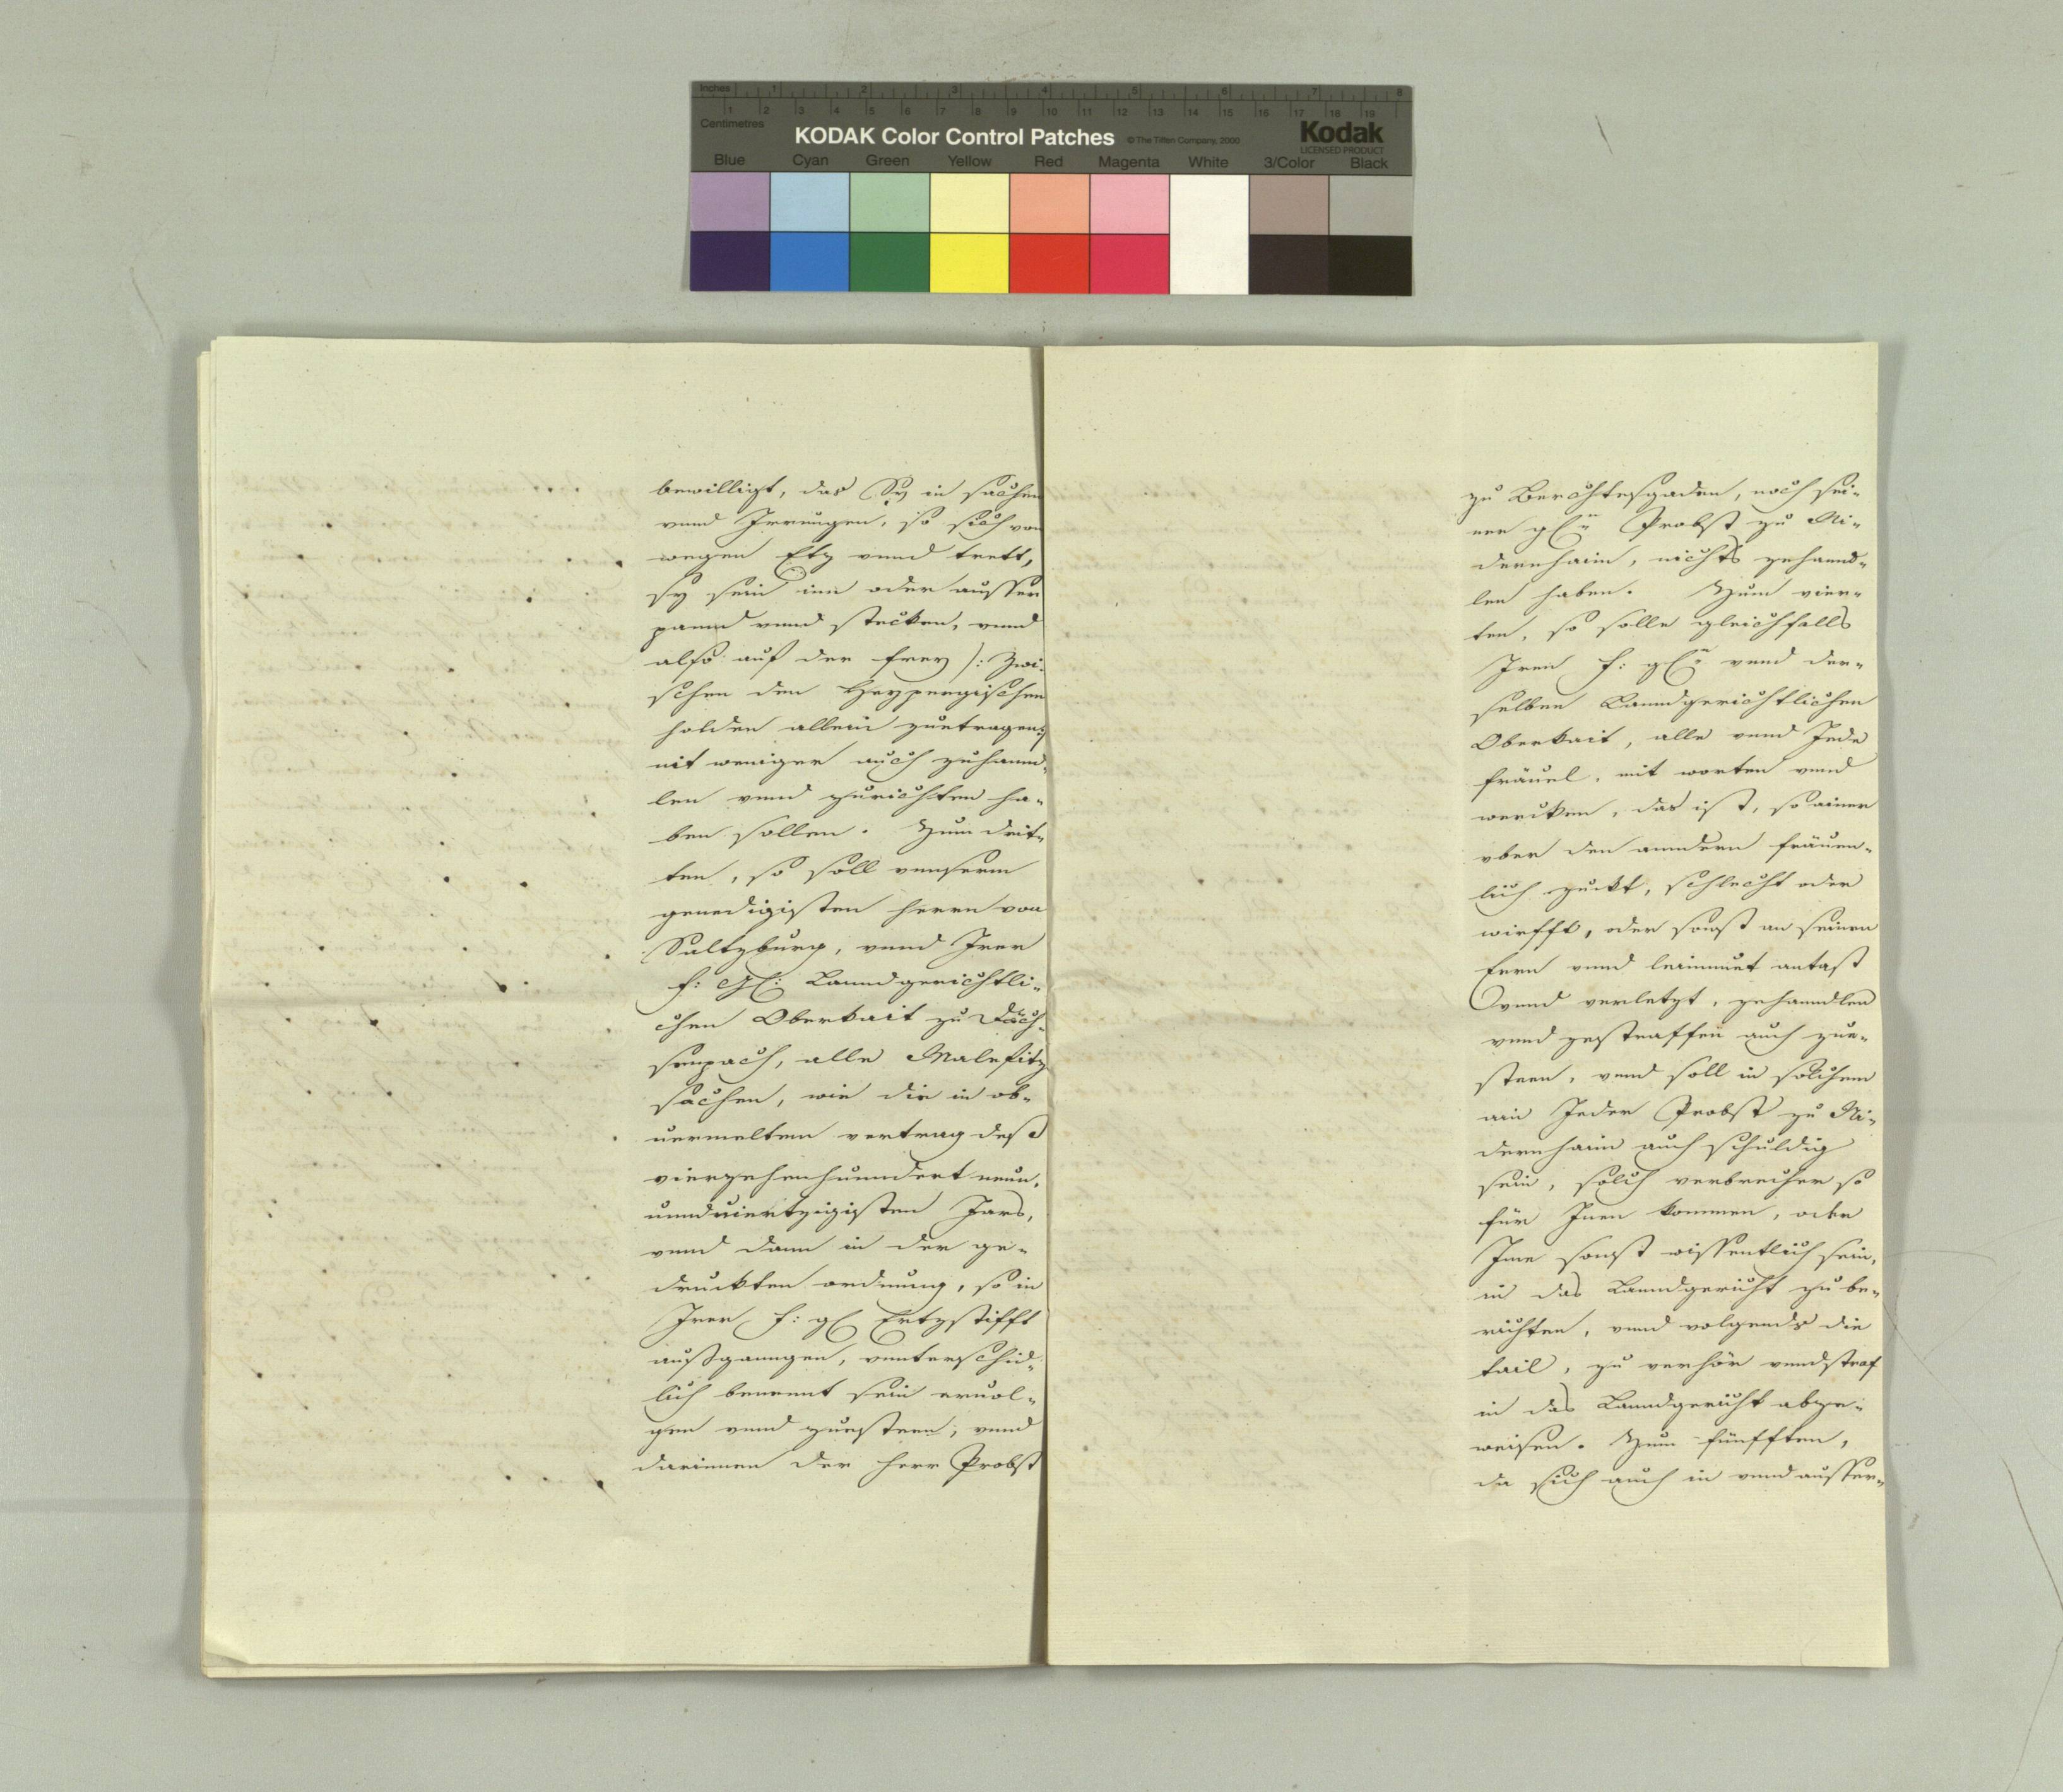 Inches 1 2 3 4 5 6 7 8
1 2 3 4 5 6 7 8 9 10 11 12 13 14 15 16 17 18 19
Centimetres
KODAK Color Control Patches © The Tiffen Company, 2000 Kodak
LICENSED PRODUCT
Blue Cyan Green Yellow Red Magenta White 3/Color Black
bewilligt, das Sy in sachen
vnnd Irrungen, so sich von
wegen Etz vnnd trett,
sy sein inn oder ausser
pannd vnnd stecken, vnnd
also auf der frey /: Zwi-
schen den Heypergischen
holden allein zuetragen,
nit weniger auch zuhannd-
len vnnd zurichten ha-
ben sollen. Zum drit-
ten, so soll vnnserm
genedigisten herrn von
Saltzburg, vnnd Irer
f: Gl: Lanndgerichtli-
chen Oberkait zu
senpach, alle Malefitz
sachen, wie die in ob-
uermeltem vertrag deß
vierzehenhunndert neun-
unnduiertzigisten Jars,
vnnd dann in der ge-
druckten ordnung, so in
Irer f: gl Ertzstifft
außganngen, vnnterschid-
lich benennt sein eruol-
gen vnnd zuesteen, vnnd
darinnen der herr Probst
zu Berchtesgaden, noch sei-
ner gln Probst zu Ni-
dernhaim, nichts zehannd-
len haben. Zum vier-
ten, so solle gleichfalls
Iren f: gln vnnd der-
selben Lanndgerichtlichen
Oberkait, alle vnnd Jede
fräuel, mit worten vnnd
wercken, das ist, so ainer
vber den anndern fräuen-
lich zuckt, schlecht oder
wirfft, oder sonst an seinen
Eern vnnd leinmuet antast
vnnd verletzt, zehanndlen
vnnd zestraffen auch zue-
steen, vnnd soll in solchem
ain Jeder Probst zu Ni-
dernhaim auch schuldig
sein, solch verbrecher so
für Inen kommen, oder
Ime sonst wissentlich sein,
in das Lanndgericht zu be-
richten, vnnd volgends die
tail, zu verhör vnnd straf
in das Lanndgericht abze-
weisen. Zum fünfften,
da sich auch in vnnd ausser-